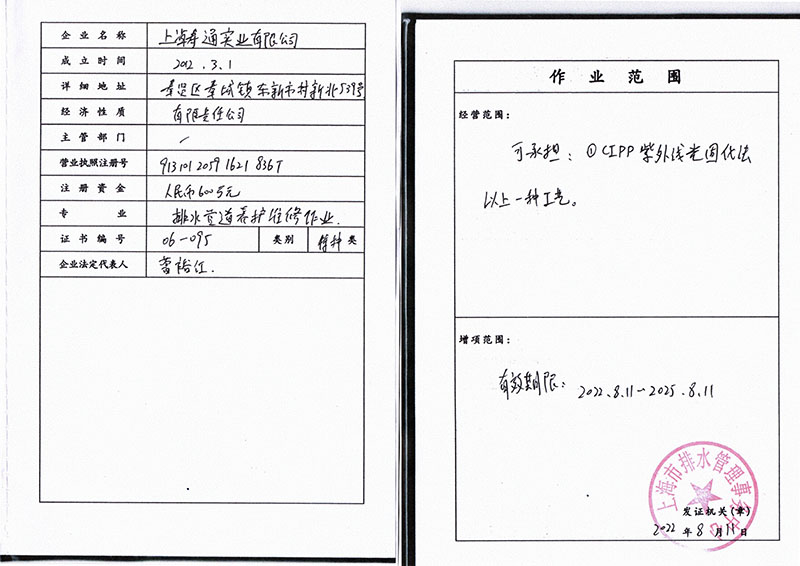 企业名称 上海寿通实业有限公司
成立时间 2012.3.1
详细地址 奉贤区奉城镇东新市村新北539号
经济性质 有限责任公司
主管部门 /
营业执照注册号 913101205916218367
注册资金 人民币600万元
专业 排水管道养护维修作业.
证书编号 06-095 类别 特种类
企业法定代表人
作业范围
经营范围:
可承担:①CIPP紫外线光固化法
以上一种工艺。
增项范围:
有效期限: 2022.8.11-2025.8.11
上海市排水管理事务中心
发证机关(章)
2022年8月11日